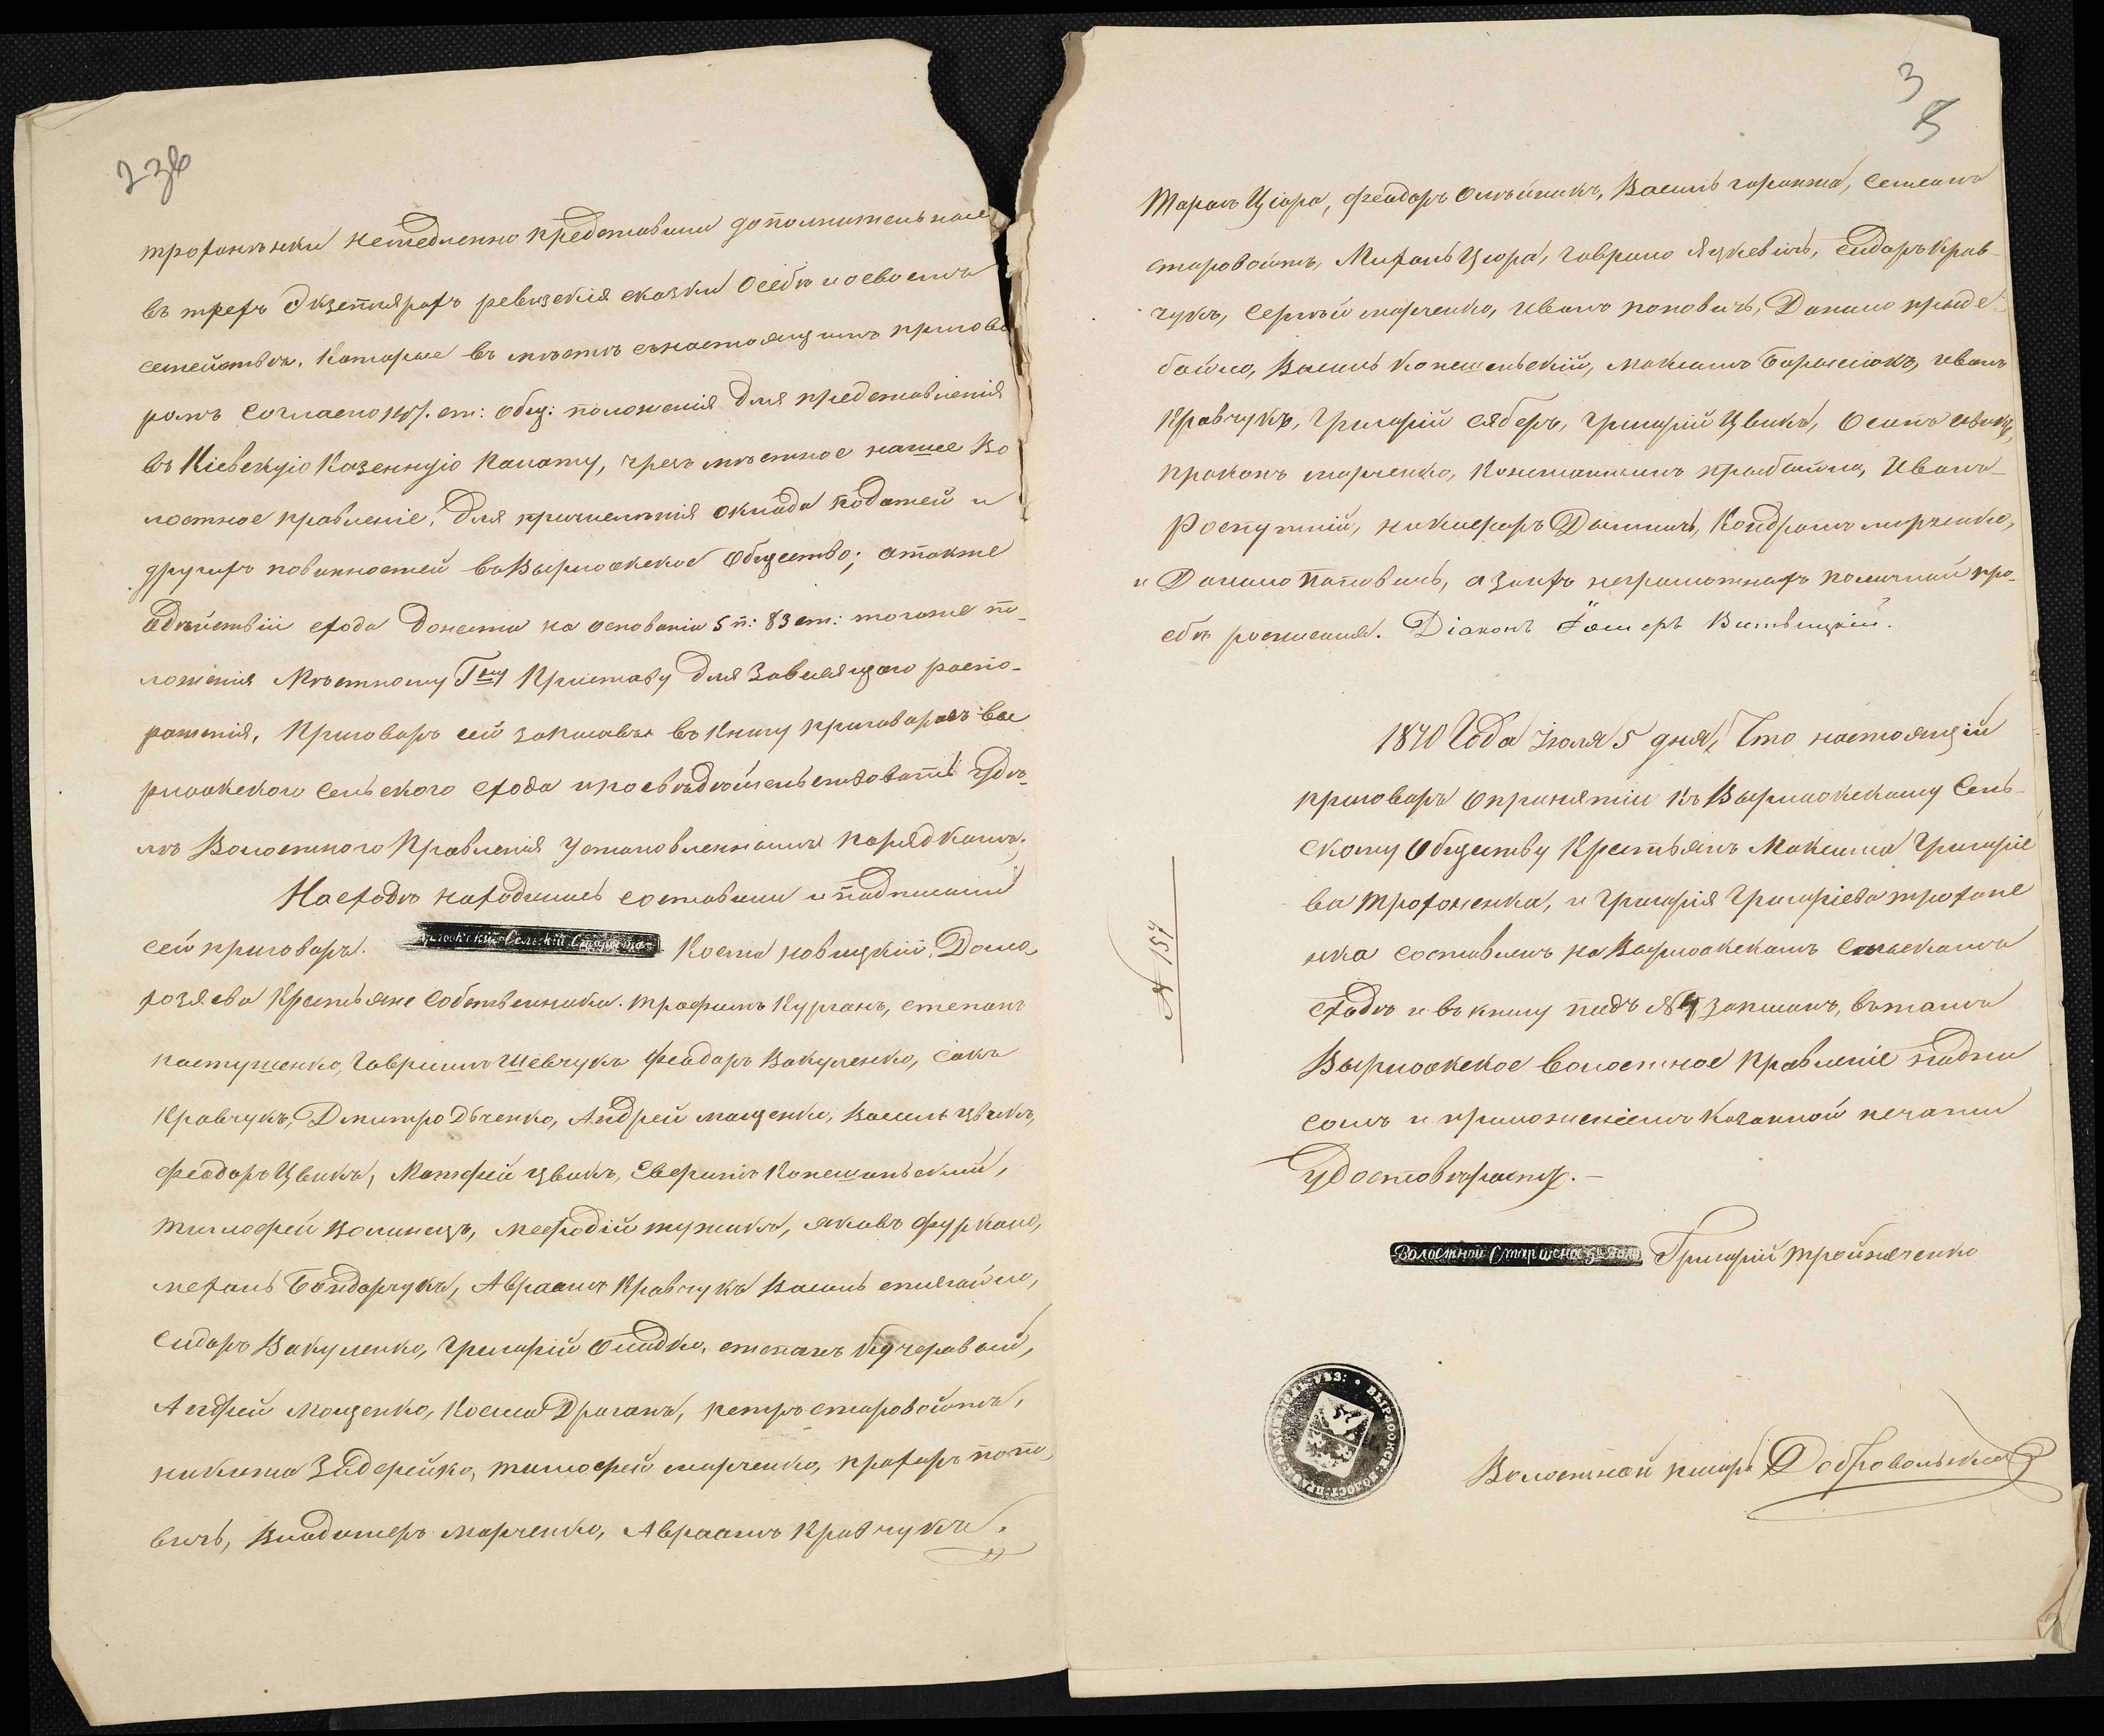 238
трохонѣнки немедленно представили дополнительные
въ трехъ экземплярахъ ревизскія сказки о себѣ и о своемъ
семействѣ. Которые въ мѣстѣ съ настоящимъ пригово
ромъ согласно ст: общ: положенія для представленія
въ Кіевскую Казенную Палату, чрезъ мѣстное наше Во
лостное правленіе, для причисленія оклада податей и
другихъ повинностей въ Вырлоокское общество; а также
о дѣйствіи схода донести на основаніи 5 п: 83 ст: тогоже по-
ложенія Мѣстному Приставу для зависящаго распо-
ряженія, Приговоръ сей записать въ Книгу приговоровъ Вы
рлоокского сельского схода и просвидѣтельствовать
Волостного Правленія установленнымъ порядкомъ.
На сходѣ находились составили и подписали
сей приговоръ. Сельскій Староста Косма новицкій. Домо
хозяева Крестьяне Собственники. Трофимъ Курганъ, степанъ
пастушенко, Гаврило Шевчукъ Феодоръ Вакуленко, сакъ
Кравчукъ, Дмитро Дѣченко, Андрей мащенко, Василь цвикъ,
Феодоръ Цвикъ, Матфей цвикъ, Сверинъ Копешанский,
Тимофей Волинецъ, мефодій тужикъ, яковъ фуркало,
Бондарчукъ, Авраамъ Кравчукъ Василь
Сидоръ Вакуленко, Григорій Ошдко, степанъ Кучеравый,
Андрей Мащенко, Косма Драганъ, петръ старовойтъ,
никита Задерейко, тимофей марченко, прохоръ попо
вичъ, Владимеръ Марченко, Авраамъ Кравчукъ.
3
5
Тарасъ Цюра, Феодоръ Олѣйникъ, Василь гаранжа, Семенъ
старовойтъ, Цюра, Гаврило Яцкевичъ, Сидоръ Крав-
чукъ, Сергѣй марченко, иванъ поповичъ, Данило
Василь Копешанскій, максимъ Борисюкъ, иванъ
Кравчукъ, Григорій сяберъ, григорій Цвикъ, Осипъ цвикъ,
прокопъ марченко, Константинъ Иванъ
Роспутній, никифоръ Кондратъ марченко,
и Данило Поповичъ, а за ихъ неграмотныхъ по личной про-
сбѣ росписался. Діаконъ Витвицкій.
1870 Года Іюля 5 дня, Что настоящій
приговоръ о принятіи къ Вырлоокскому Сель-
скому Обществу Крестьянъ Максима Григоріе
ва Трохоненка, и Григорія Григоріева трохоне
нка составленъ на Вырлоокскомъ Сельскомъ
сходѣ и въ книгу подъ № записанъ, въ томъ
Вырлоокское волостное Правленіе подпи
сомъ и приложеніемъ Казенной печати
удостовѣряетъ.-
№ 157
Волостной Старшена Григорій тройняченко
Волостной писарь Добровольскій